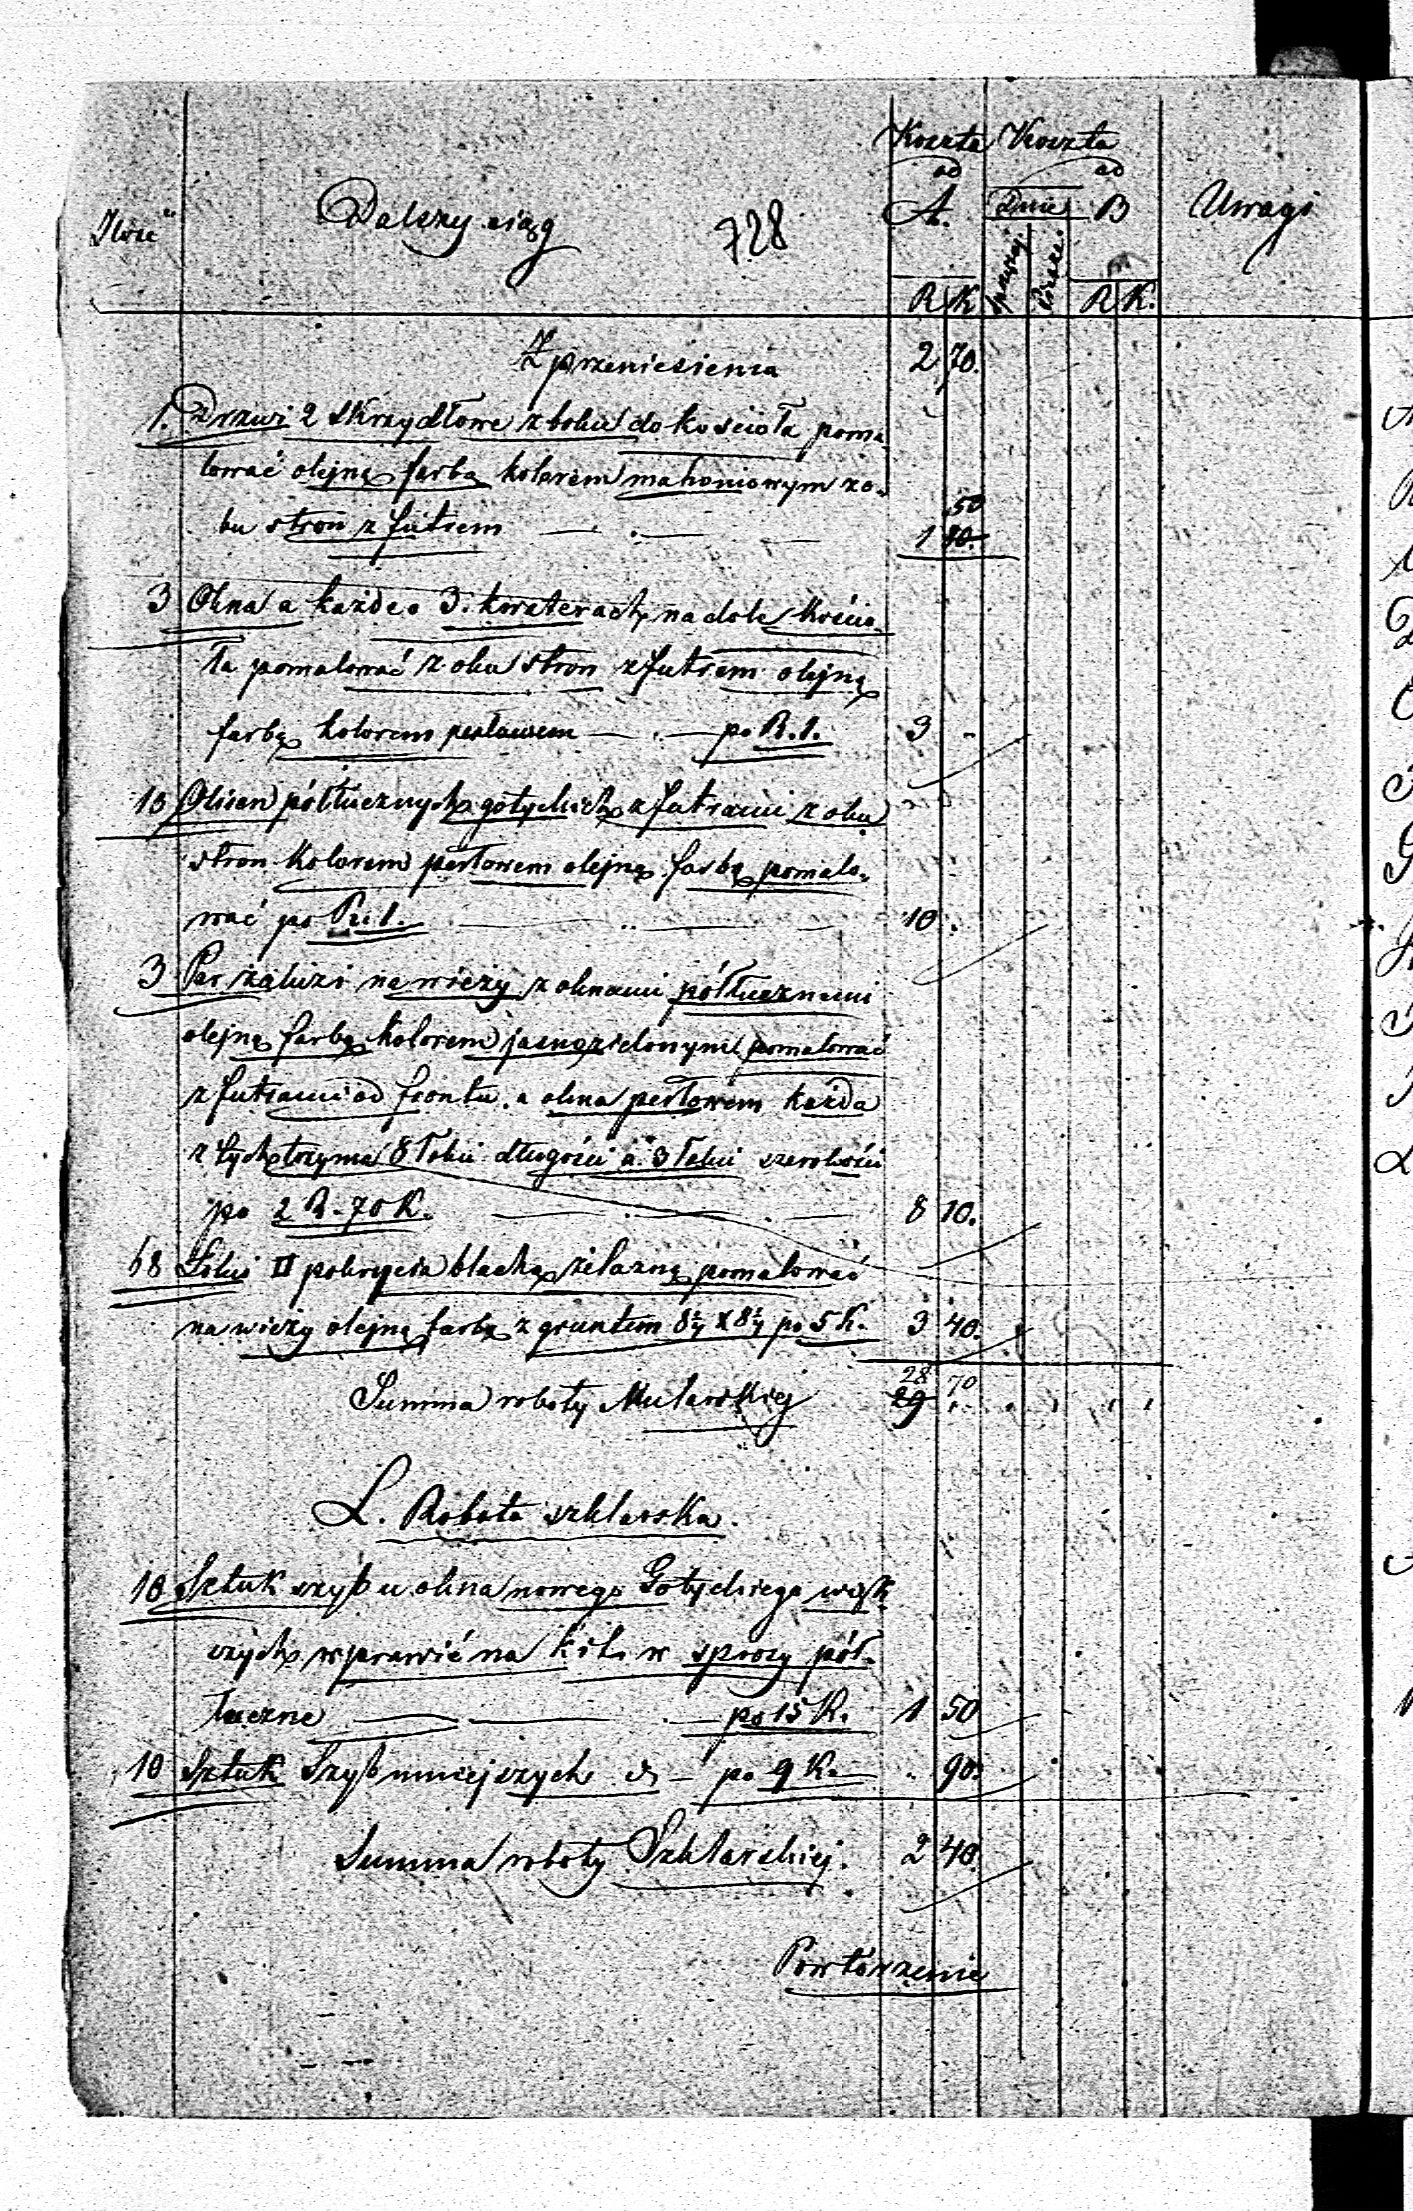 Ilość
Dalszy ciąg
728
Koszta ad A.
Koszta ad B
Dnie
Uwagi
R K
R K.
Z przeniesienia 2 70.
1. Drzwi 2 skrzydłowe z boku do kościoła poma
lować olejną farbą kolorem mahoniowym zo-
bu stron z futrem 1 80. 50
3 Okna a każde o 3. kwaterach na dole kościo-
ła pomalować z obu stron z futrem olejną
farbą kolorem perłowem po R. 1. 3 -
10 Okien półłucznych gotyckich z futrami z obu
stron kolorem perłowem olejną farbą pomalo-
wać po R. 1. 10 .
3 Par żaluzi na wieży z oknami półłucznemi
olejną farbą kolorem jasnozielonym pomalować
z futrami od frontu. a okna perłowem każda
z tych trzyma 8 łokci długości a 3 łokci szerokości
po 2 R. 70 K. 8 10.
68 Łokci □ pokrycia blachą żelazną pomalować
na wieży olejną farbą z gruntem 8¼ x 8¼ po 5 K. 3 40.
28 70
Summa roboty Mularskiej 29 . . . . . .
L. Robota szklarska.
10 Sztuk szyb u okna nowego Gotyckiego więk-
szych wprawić na kit. w sprosy pół-
łuczne po 15 K. 1 50
10 Sztuk Szyb mniejszych po 9 K. . 90.
Summa roboty Szklarskiej. 2 40.
Powtórzenie